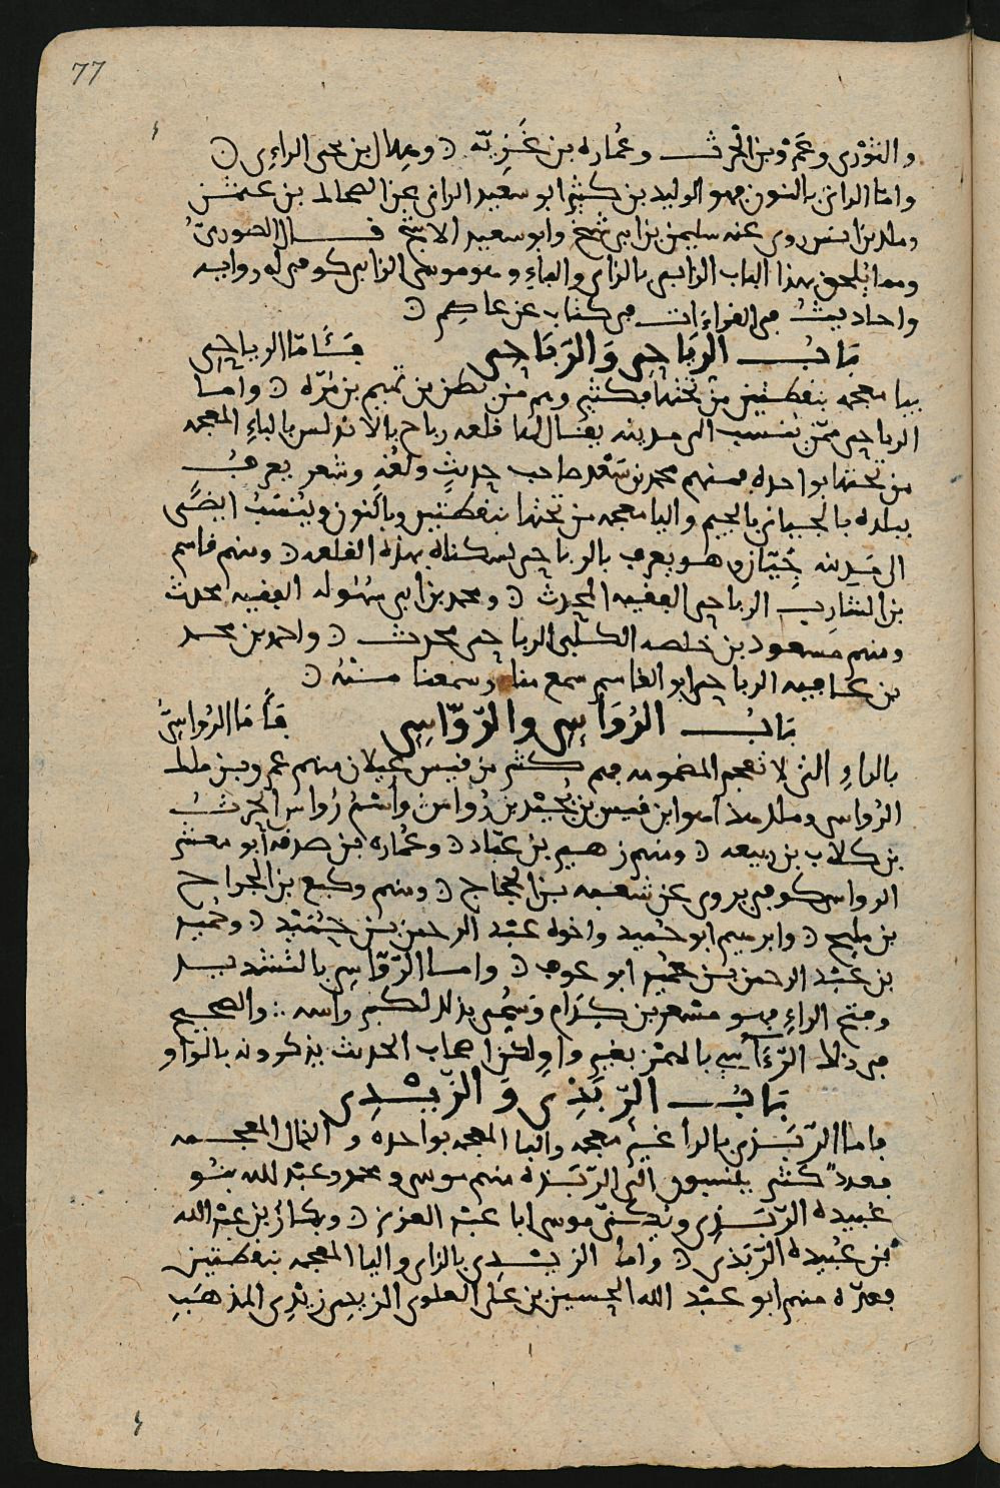 77
والثوري وعَمْرو بن الحرث وعُماره بن غَزِيّه ۞ وهلال بن يحيى الراءِي ۞
واما الراني بالنون فهو الوليد بن كثير ابو سعيد الراني عن الضحاك بن عثمن
ومالك بن انس روى عنه سليمن بن ابي شيخ وابو سعيد الاشج قال الصوريّ
ومما يُلحق بهذا الباب الزابي بالزاي والباءِ وهو موسى الزابي كوفي له روايه
واحاديثُ في القراءَات في كتاب عن عاصِم ۞
بَابُ الرِيَاحِي وَالرَبَاحِي فَأمّا الرياحِي
بيا معجمه بنقطتين من تحتها فكثير وهم من بطن بن تميم بن مُرّه ۞ واما
الرباحي ممّن يُنسب الى مدينه يقال لها قلعه رباح بالاندلس بالباءِ المعجمه
من تحتها بواحده فمنهم محمد بن سَعْد صاحب حديثٍ ولُغةٍ وشعر يعرفُ
ببلده بالجيياني بالجيم واليا معجمه من تحتها بنقطتين وبالنون ويُنْسَبُ ايضًا
الى مَدِينه جَيّان وهو يعرف بالرباحي لسكناه بهذه القلعه ۞ ومنهم قاسم
بن الشارب الرباحي الفقيه المحدث ۞ ومحمد بن ابي سَهُوله الفقيه محدث
ومنهم مسعود بن خلصه الكلبي الرباحي محدث ۞ واحمد بن محمد
بن عافيه الرباحي ابو القاسم سمع منا وسمعنا منه ۞
بَابُ الرُوَاسِي والرّوّاسِي فَأمّا الرُواسِيّ
بالراءِ التي لا تُعجم المضمومه فهم كثير من قيس عيلان منهم عمرو بن مالك
الرُواسي ومالك هذا هو ابن قيس بن بُجَيْد بن رُواس وأسْمُ رُواس الحرثُ
بن كلاب بن ربيعه ۞ ومنهم زهير بن عبّاد ۞ وعُماره بن صدقه أبو معشر
الرواسي كوفي يروى عن شعبه بن الحجاج ۞ ومنهم وكيع بن الجراح
بن مليح ۞ وابرهيم ابو حُميد واخوه عَبْد الرحمن بن حُمَيْد ۞ وحُميد
بن عَبْد الرحمن بن حُميْد ابو عوف ۞ واما الرّوّاسِي بالتشديد
وفتح الراءِ فهو مِسْعر بن كِدَام وسُمِّي بذلك لكبر راسه ∴ والصحيح
في ذلك الرّءَّاسي بالهمْز بغير واوٍ لكن اصحاب الحديث يذكرونه بالواو
بَابُ الرّبَذِي وَ الزّيْدِي
فاما الرّبَذي بالرا غير معجمه والبا المعجمه بواحده و الذال المعجمه
فعددٌ كثير ينسبون الى الرّبَذه منهم موسى ومحمد وعَبْد الله بنُو
عُبيده الرّبَذِي ويُكنّى موسى ابا عَبْد العزيز ۞ وبكار بن عَبْد الله
بن عُبيده الرّبَذي ۞ واما الزيْدِي بالزاي واليا المعجمه بنقطتين
فعِدّه منهم ابو عبْد الله الحسين بن علي العلوي الزيدي زيْدِي المذهَبِ